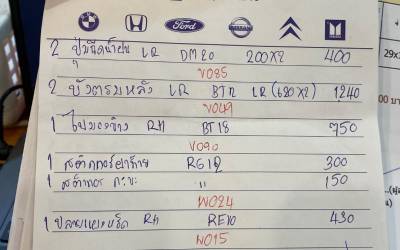 Ford NISSAN
2 ปั๊มฉีดน้ำฝน LR DM20 200X2 400
V085
2 บังตรมหลัง LR BT12 LR (620X2) 1240
V049
1 ไฟมองข้าง RH BT18 750
V090
1 สติ๊กเกอร์ฝาท้าย RG12 300
1 สติ๊กเกอร์ " 150
W024
1 RH RE10 430
W015
29x
00 บา